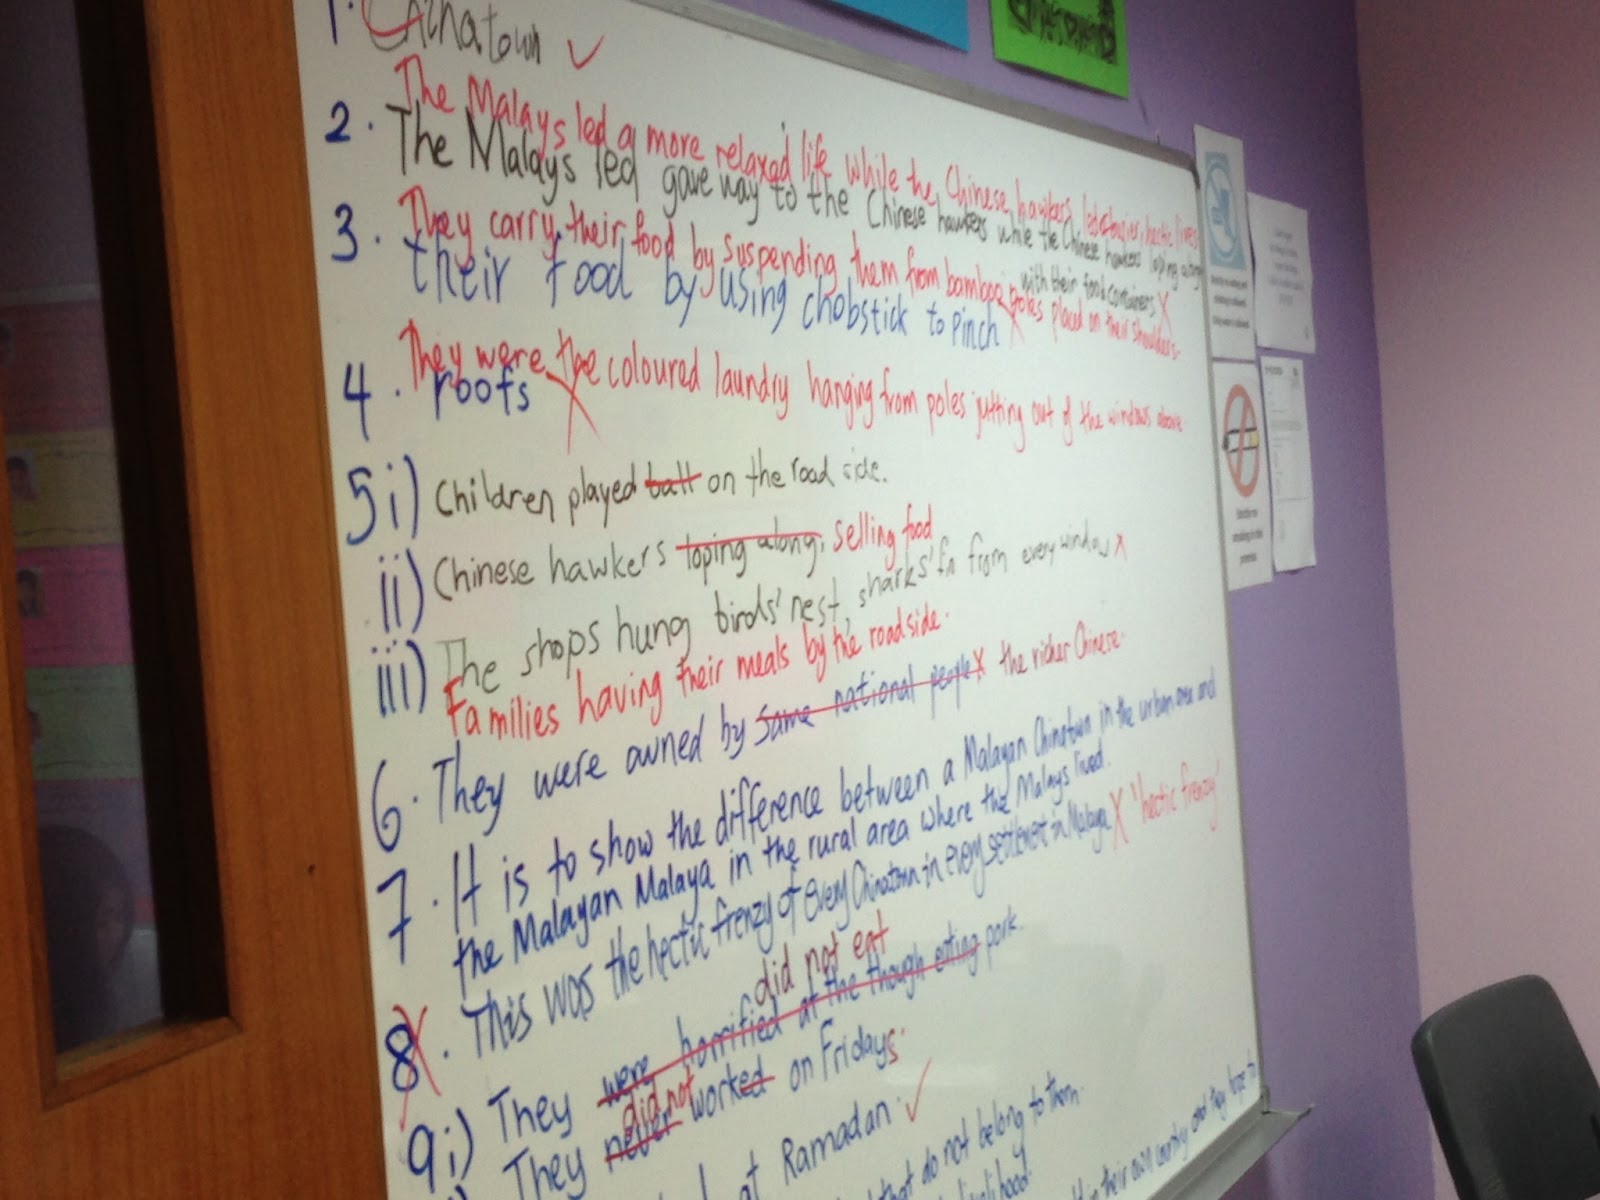 1. Chinatown ✓
The Malays led a more relaxed life while the Chinese hawkers led busier, hectic lives
2. The Malays led gave way to the Chinese hawkers while the Chinese hawkers loping along
with their food containers X
They carry their food by suspending them from bamboo poles placed on their shoulders.
3. their food by using chobstick to pinch X
They were the coloured laundry hanging from poles jutting out of the windows above
4. roofs X
5i) Children played ball on the road side.
ii) Chinese hawkers loping along, selling food
iii) The shops hung birds' nest, sharks' fin from every window X
Families having their meals by the roadside.
6. They were owned by same national people X the richer Chinese.
7. It is to show the difference between a Malayan Chinatown in the urban area and
the Malayan Malaya in the rural area where the Malays lived.
8. This was the hectic frenzy of every Chinatown in every settlement in Malaya X 'hectic frenzy'
did not eat
9i) They were horrified at the though eating pork.
did not
They never worked on Fridays.
at Ramadan. ✓
that do not belong to them.
livelihood.
in their own country and they hope to